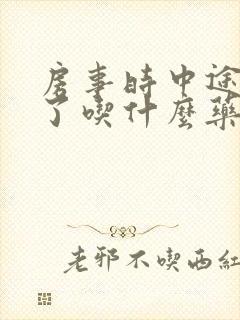 房事时中途
了喫什麼藥
老邪不喫西紅